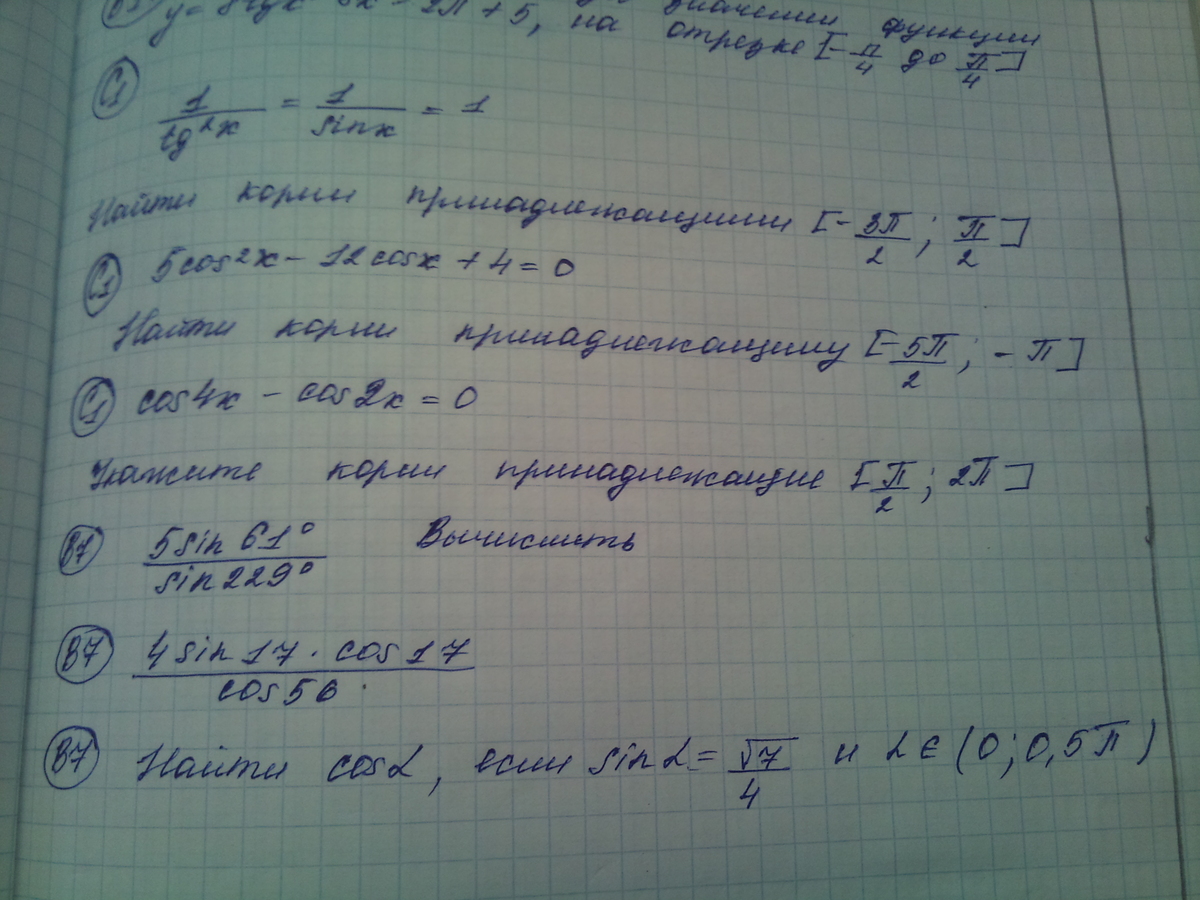 значении функции
+ 5, на отрезке [-π/4 до π/4]
C1
1/tg²x = 1/sinx = 1
Найти корни принадлежащими [-3π/2; π/2]
C1 5cos²x - 12cosx + 4 = 0
Найти корни принадлежащему [-5π/2; -π]
C1 cos4x - cos2x = 0
Укажите корни принадлежащие [π/2; 2π]
B7 5sin61°/sin229° Вычислить
B7 4sin17·cos17/cos56
B7 Найти cosα, если sinα = √7/4 и α∈(0; 0,5π)